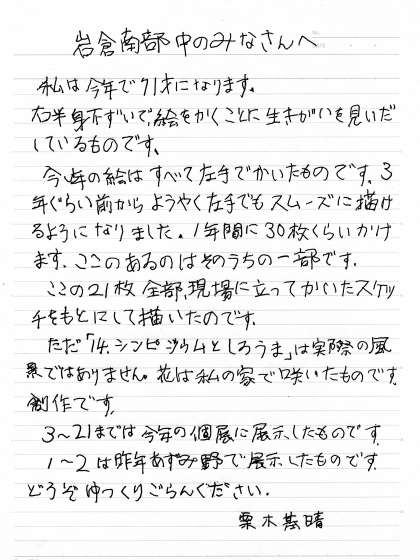 岩倉南部中のみなさんへ
私は今年で71才になります。
右半身不ずいで、絵をかくことに生きがいを見いだ
しているものです。
今年の絵はすべて左手でかいたものです。3
年ぐらい前からようやく左手でもスムーズに描け
るようになりました。1年間に30枚くらいかけ
ます。ここのあるのはそのうちの一部です。
ここの21枚全部、現場に立ってかいたスケッ
チをもとにして描いたのです。
ただ「14.シンビジウムとしろうま」は実際の風
景ではありません。花は私の家で咲いたものです
創作です。
3〜21までは今年の個展に展示したものです
1〜2は昨年あずみ野で展示したものです
どうぞゆっくりごらんください。
栗木 晴